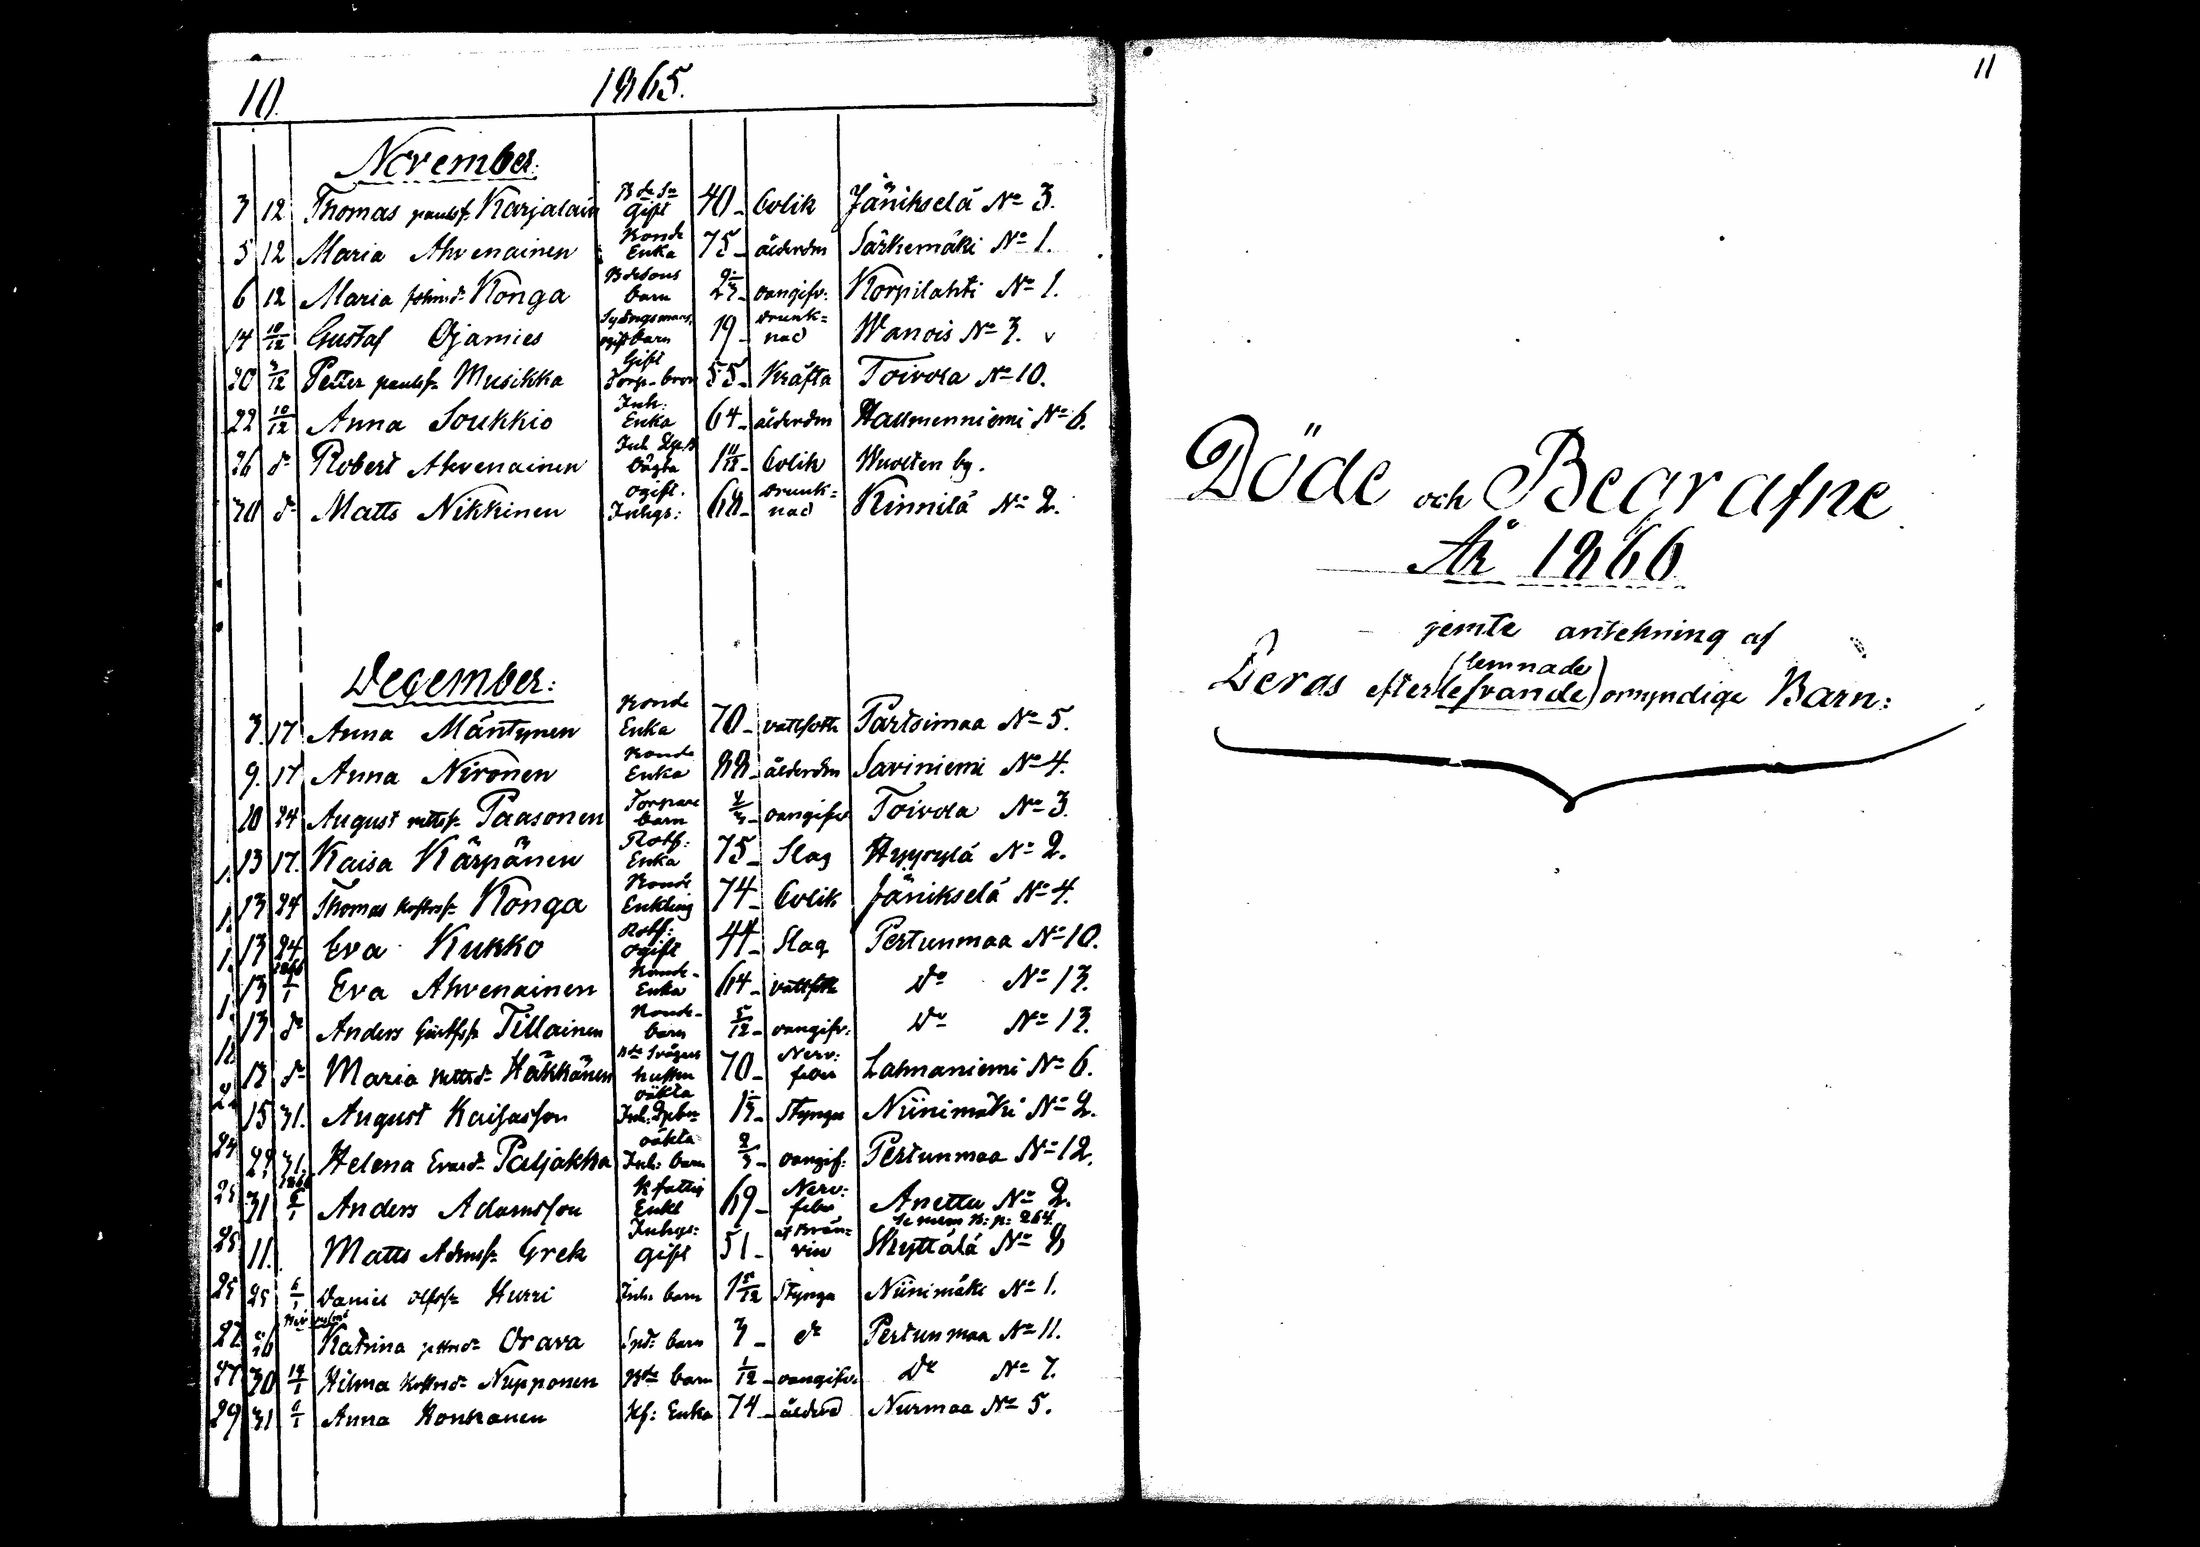 10.
1865.
November:
3 12 Thomas paulsf. Karjalain Bde Sn Gift 40 Colik Jänikselä No 3.
5 12 Maria Ahvenainen Bonde Enka 75 ålderdm Särkemäki No 1.
6 12 Maria Johnsd. Konga barn oangifv: Korpilahti No 1.
14 10/12 Gustaf Ojamies barn 19 drunk=nad Wanois No 3.
20 3/12 Petter paulsf. Musikka Gift Torp. bror 55 Kräfta Toivola No 10.
22 10/12 Anna Soukkio Inh: Enka 64 ålderdm Hallmenniemi No 6.
26 do Robert Ahvenainen Inh. oägta 1 11/12 Colik Wuolten by.
30 do Matts Nikkinen ogift. Inhgs: 68 drunk=nad Kinnilä No 2.
December:
3. 17 Anna Mäntynen Bonde Enka 70 vattsott Partsimaa No 5.
9. 17 Anna Nironen Bonde Enka 88 ålderdm Saviniemi No 4.
10 24 August mattsf. Paasonen Torpare barn oangifv Toivola No 3.
13 17. Kaisa Kärpänen Rotf: Enka 75 Slag Hyyrylä No 2.
13 24 Thomas Konga Bonde Enkling 74 Colik Jänikselä No 4.
13 24 Eva Kukko Rotf: ogift 44 Slag Pertunmaa No 10.
13 Eva Ahvenainen Bonde Enka 64 vattsott Do No 13.
13 do Anders Gustfsf. Tillainen Bonde barn 5/12 oangifv: Do No 13.
12 do Maria Mattsd. Häkkänen Bde Svågers hustru 70 Nerv: feber Lahnaniemi No 6.
15 31. August Kaisasson oäkta Stynga Niinimäki No 2.
31. Helena Evasd. Paljakka oäkta Inh: barn 2/3 oangif: Pertunmaa No 12.
31 6/1 Anders Adamsson Kfattig Enkl 69 Nerv: feber Anettu No 2.
11. Matts Admsf. Grek Inhgs: Gift 51 af Brän=vin Skyttälä No 8
25 25 6/1 Daniel Olfsf. Hurri Inh: barn 1 5/12 Stynga Niinimäki No 1.
Katrina pettersd. Orava barn 3 do Pertunmaa No 11.
27 30 14/1 Hilma Nupponen Bde barn 1/12 oangifv. Do No 7.
29 31 6/1 Anna Honkanen Kf: Enka 74 ålderd Nurmaa No 5.
11
Döde och Begrafne
År 1866
jemte antekning af
lemnade
Deras efter(lefvande) omyndige Barn: